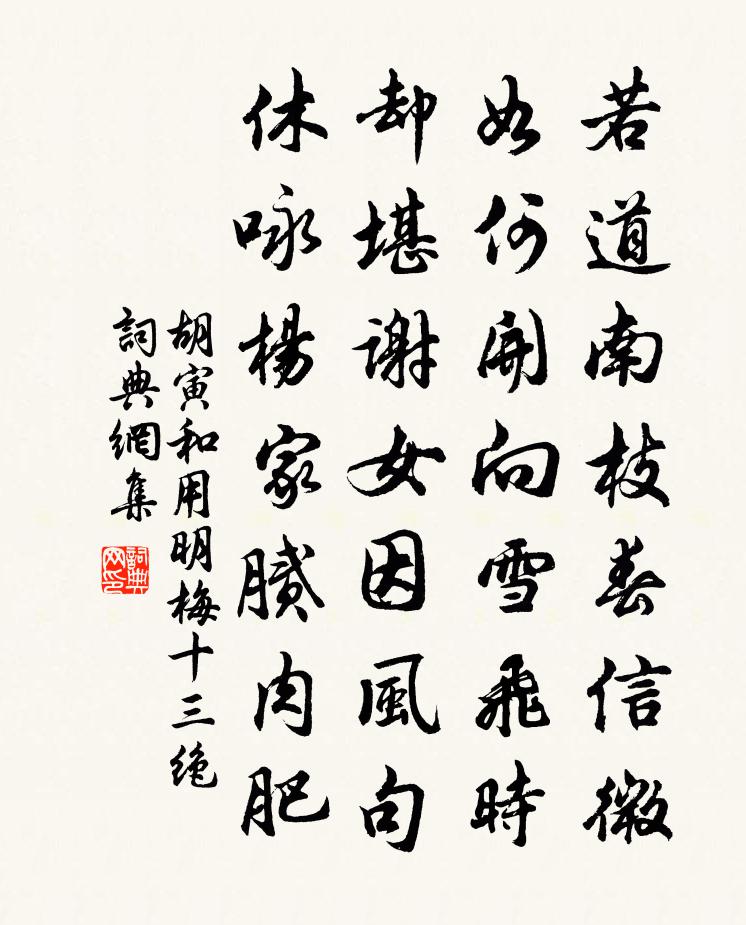 若道南枝春信微
如何開向雪飛時
却堪謝女因風句
休咏楊家膩肉肥
胡寅和用明梅十三绝
詞典網集
詞典网印